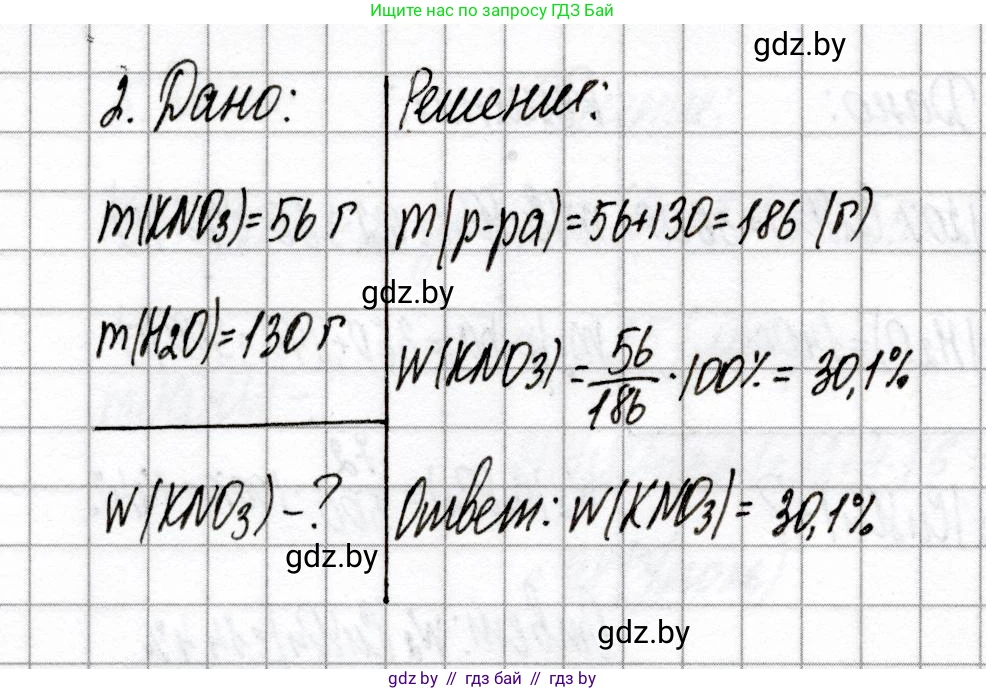 Ищите нас по запросу ГДЗ Бай
gdz.by
2. Дано:
m(KNO3)=56 г
m(H2O)=130 г
W(KNO3) -?
Решение:
m(р-ра)=56+130=186 (г)
gdz.by
W(KNO3) = 56/186 · 100% = 30,1%
Ответ: W(KNO3)= 30,1%
gdz.by
gdz.by
gdz.by // гдз бай // гдз by